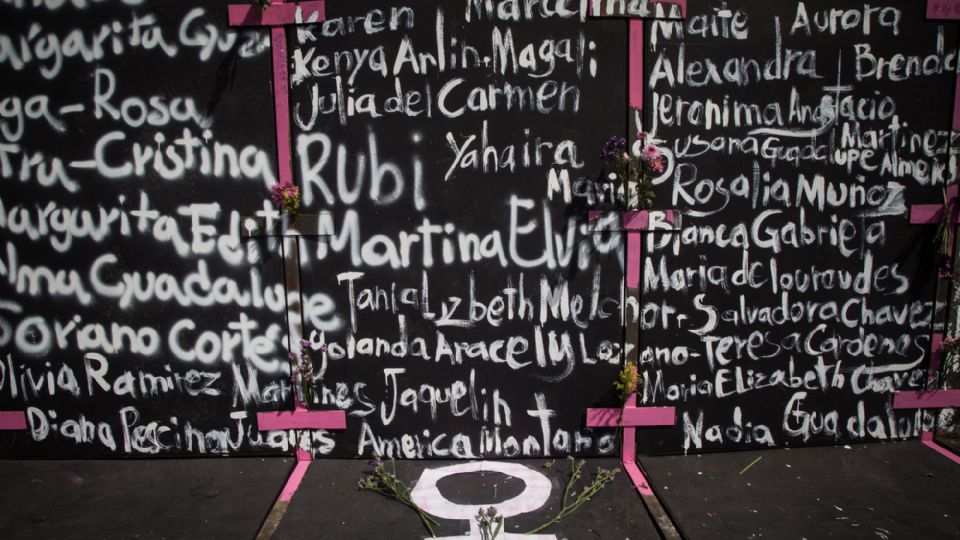 Margarita
Rosa
Cristina
Margarita Edith
Alma Guadalupe
Soriano Cortés
Olivia Ramirez Martines
Diana Juarez
Karen Marcelina
Kenya Arlin Magali
Julia del Carmen
Rubi Yahaira
Maria
Martina Elvia
Tania Lizbeth Melchor
Yolanda Aracely
Jaquelin
America Montano
Maite Aurora
Alexandra Brenda
Jeronima
Susana Guadalupe Martinez
Rosalia Muñoz
Blanca Gabriela
Maria de lourdes
Salvadora Chavez
Teresa Cardenas
Maria Elizabeth Chavez
Nadia Guadalupe